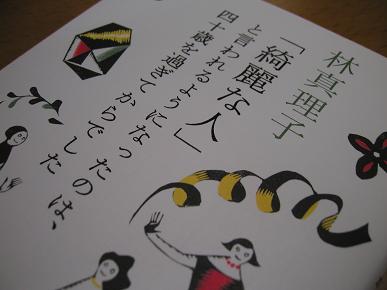 林真理子
「綺麗な人」
と言われるようになったのは、
四十歳を過ぎてからでした